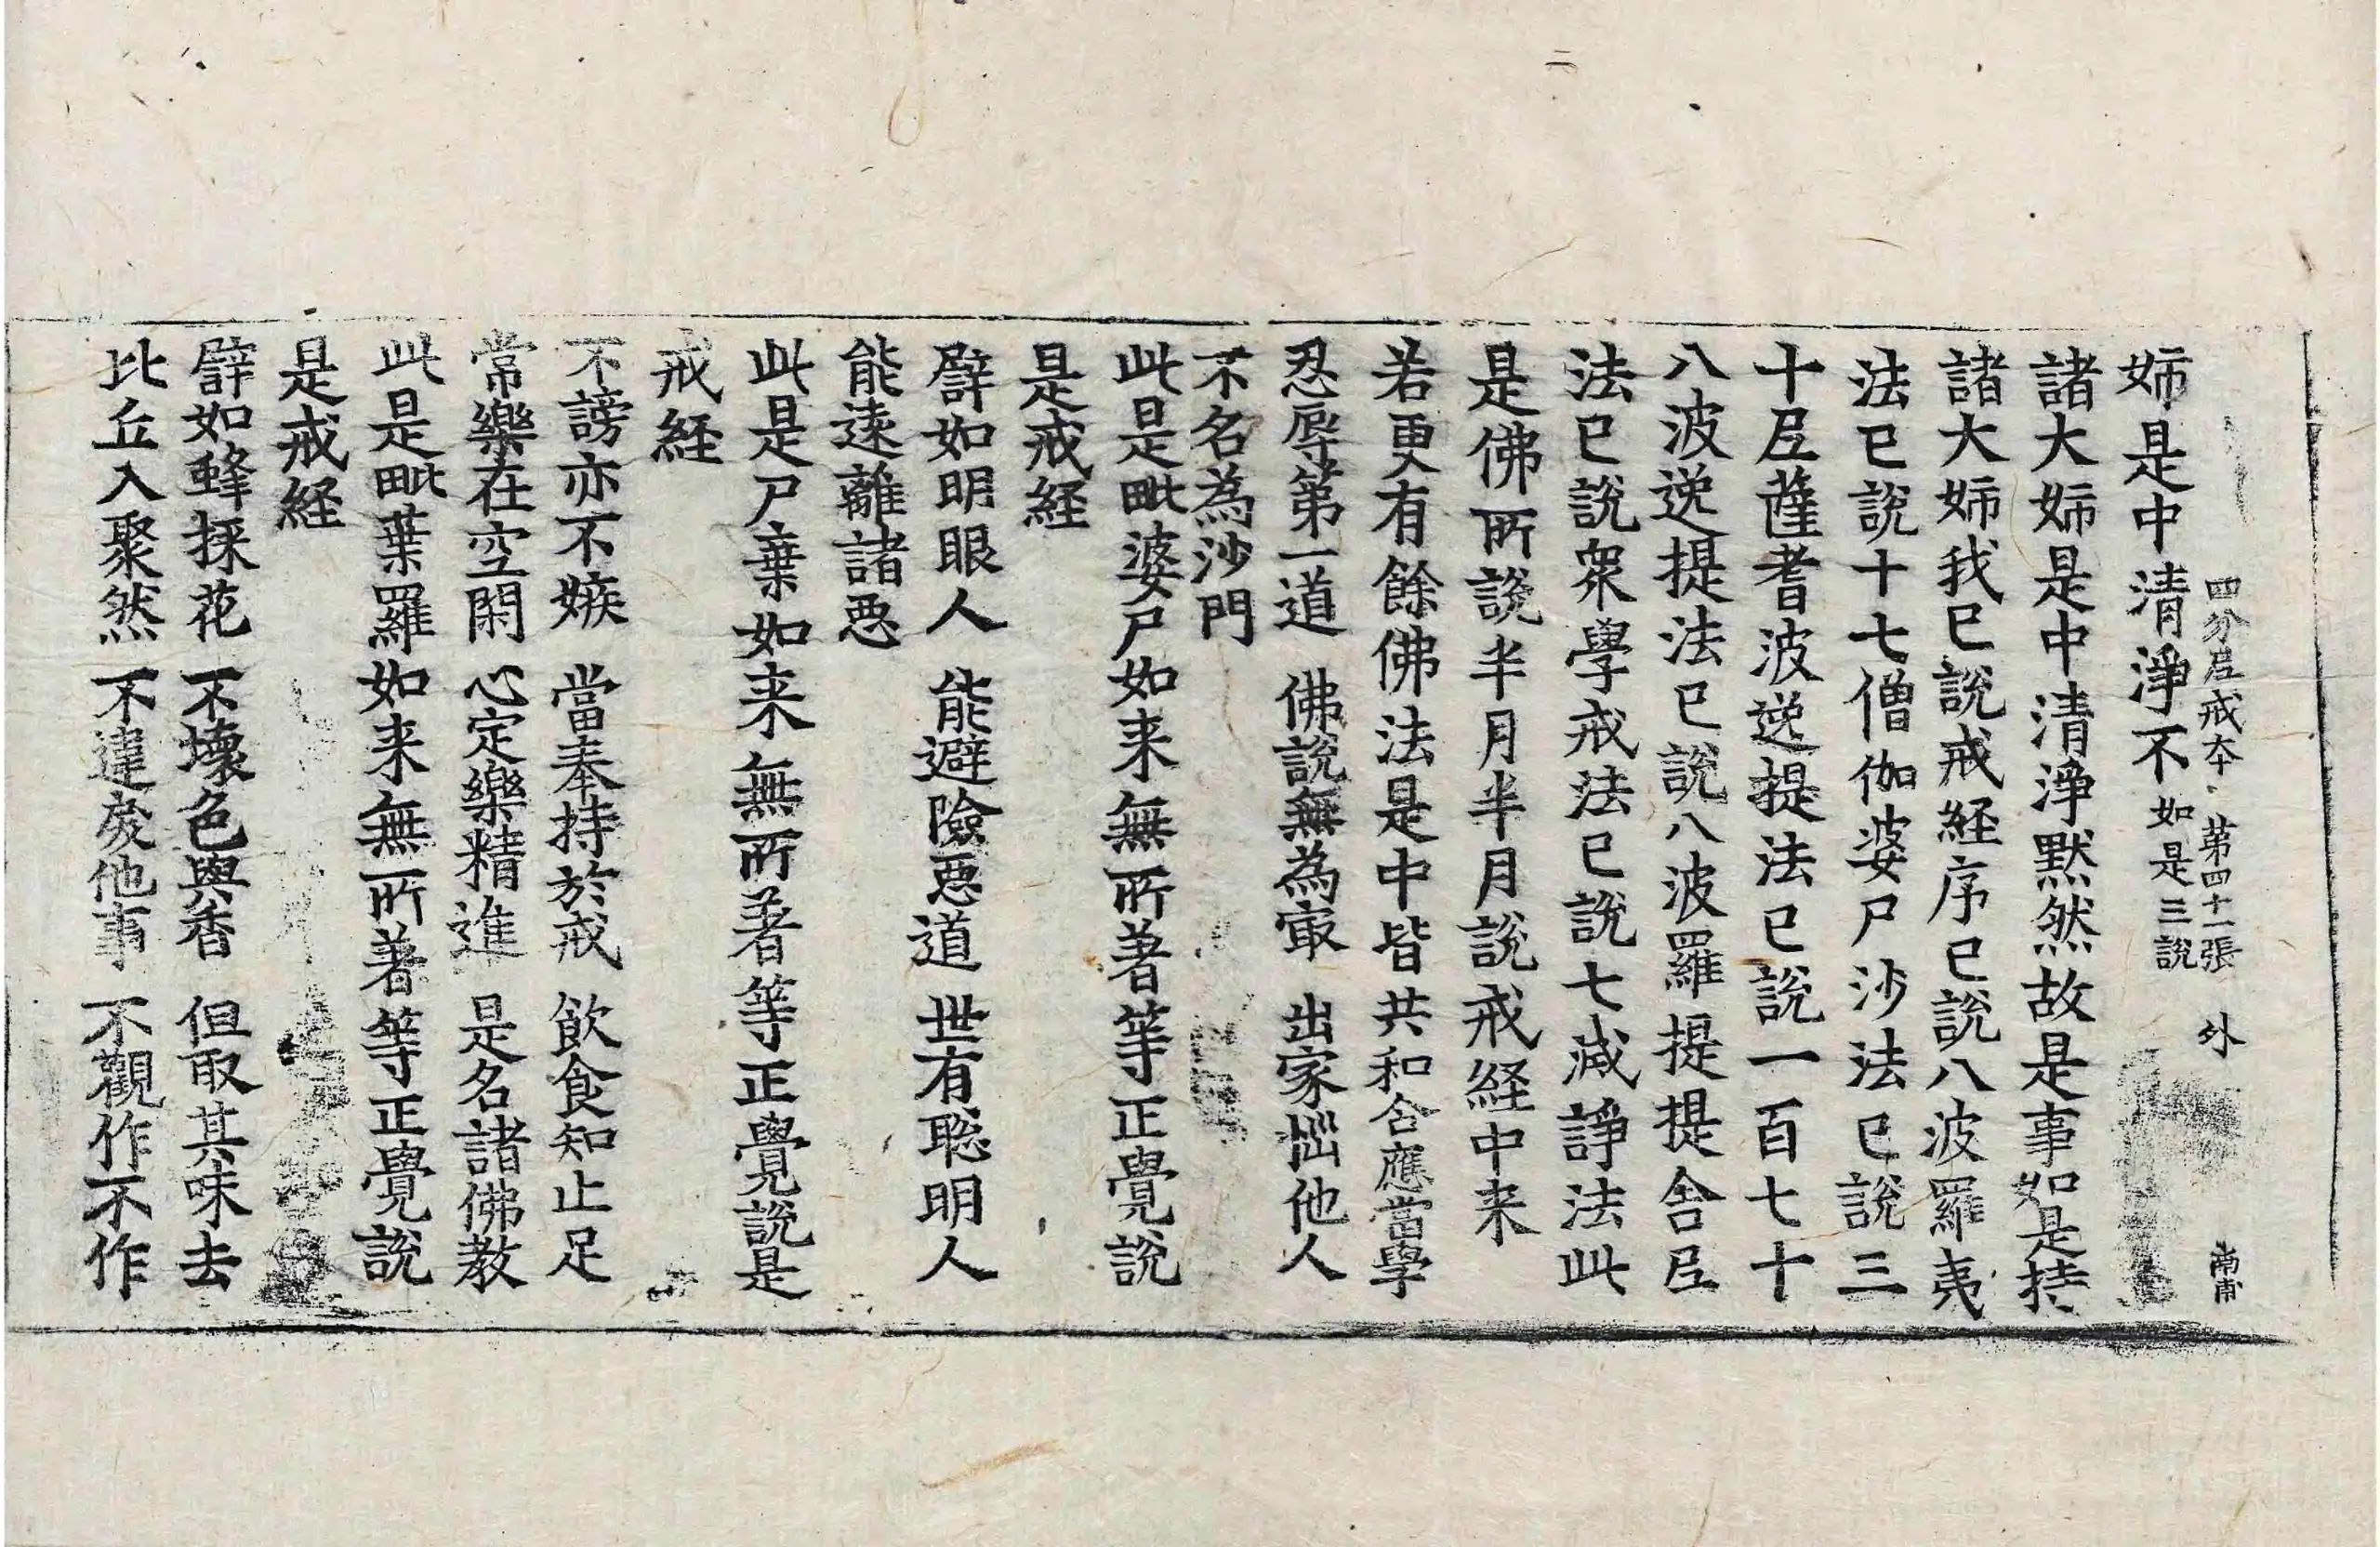 四分尼戒本 第四十一張 外 南甫
姉是中清淨不如是三說
諸大姉是中清淨默然故是事如是持
諸大姉我已說戒経序已說八波羅夷
法已說十七僧伽婆尸沙法已說三
十尼薩耆波逸提法已說一百七十
八波逸提法已說八波羅提提舎尼
法已說衆學戒法已說七滅諍法此
是佛所說半月半月說戒経中来
若更有餘佛法是中皆共和合應當學
忍辱第一道 佛說無為㝡 出家惱他人
不名為沙門
此是毗婆尸如来無所著等正覺說
是戒経
譬如明眼人 能避險惡道 世有聡明人
能遠離諸惡
此是尸棄如来無所著等正覺說是
戒経
不謗亦不嫉 當奉持於戒 飲食知止足
常樂在空閑 心定樂精進 是名諸佛教
此是毗葉羅如来無所著等正覺說
是戒経
譬如蜂採花 不壞色與香 但取其味去
比丘入聚然 不違戾他事 不觀作不作